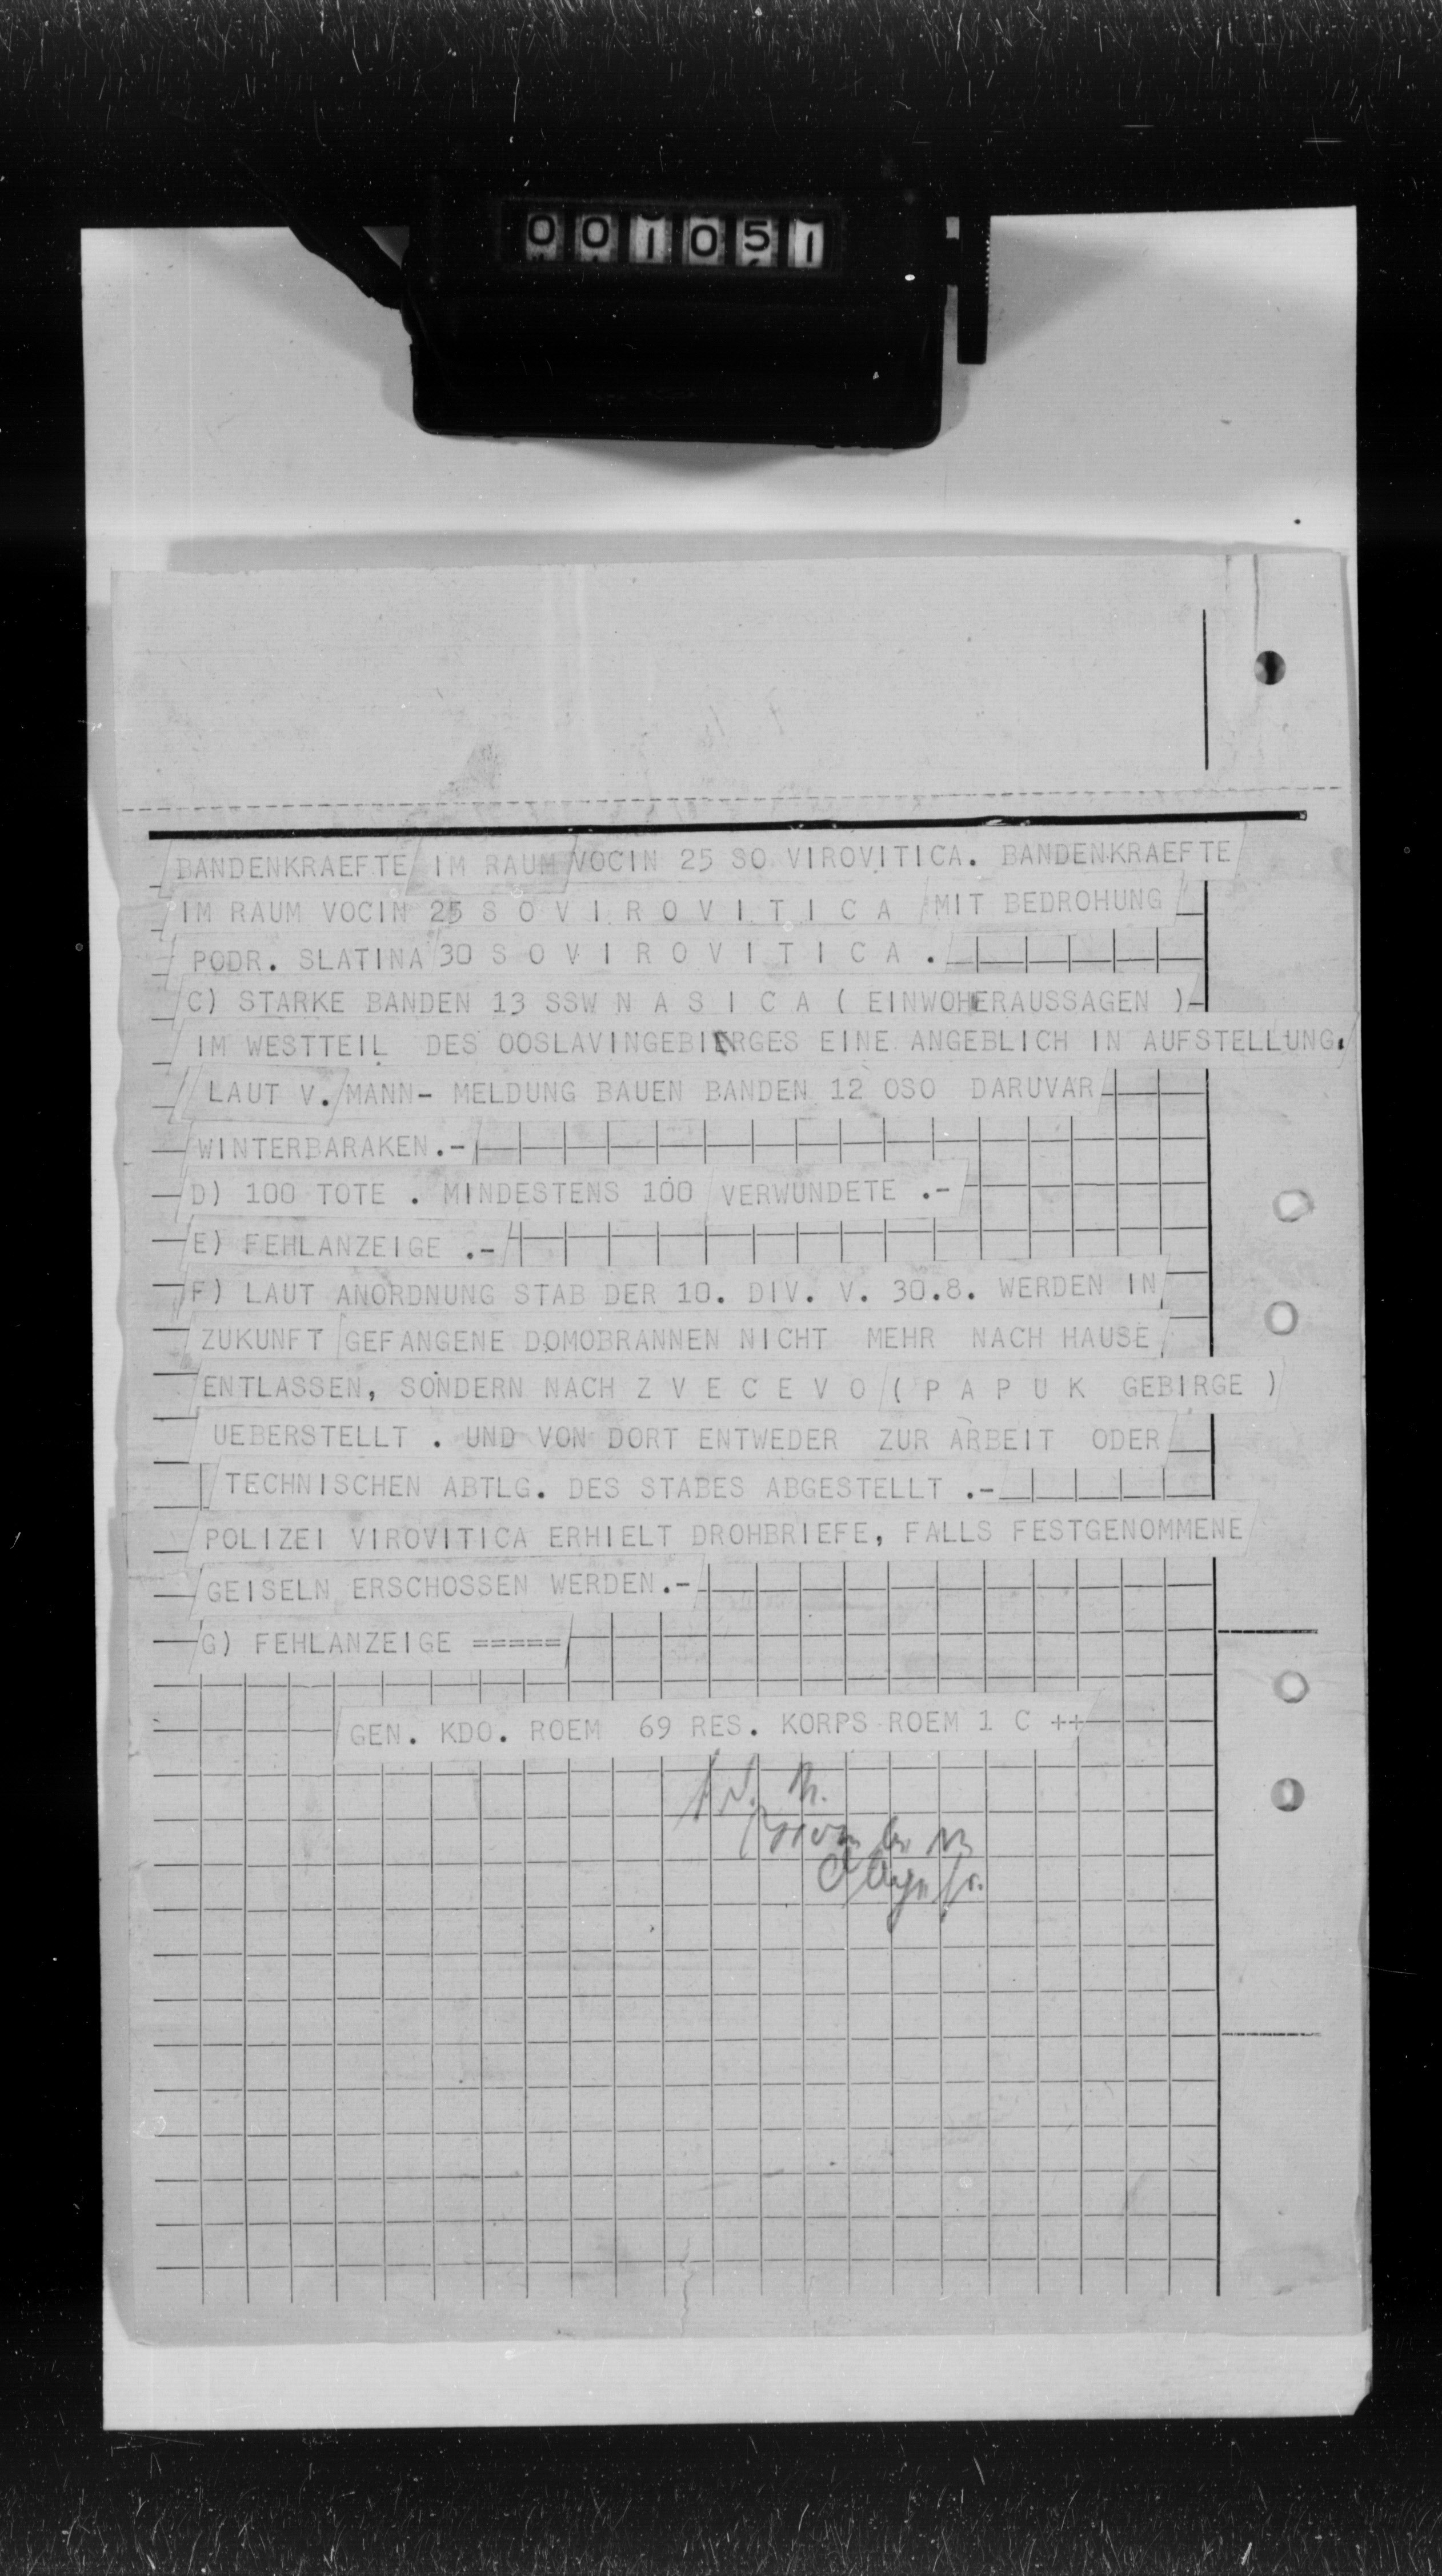 001051
BANDENKRAEFTE IM RAUM VOCIN 25 SO VIROVITICA. BANDENKRAEFTE
IM RAUM VOCIN 25 S O V I R O V I T I C A MIT BEDROHUNG
PODR. SLATINA 30 S O V I R O V I T I C A .
C) STARKE BANDEN 13 SSW N A S I C A ( EINWOHERAUSSAGEN )-
IM WESTTEIL DES OOSLAVINGEBIERGES EINE ANGEBLICH IN AUFSTELLUNG.
LAUT V. MANN- MELDUNG BAUEN BANDEN 12 OSO DARUVAR
WINTERBARAKEN.-
D) 100 TOTE . MINDESTENS 100 VERWUNDETE .-
E) FEHLANZEIGE .-
F) LAUT ANORDNUNG STAB DER 10. DIV. V. 30.8. WERDEN IN
ZUKUNFT GEFANGENE DOMOBRANNEN NICHT MEHR NACH HAUSE
ENTLASSEN, SONDERN NACH Z V E C E V O ( P A P U K GEBIRGE )
UEBERSTELLT . UND VON DORT ENTWEDER ZUR ARBEIT ODER
TECHNISCHEN ABTLG. DES STABES ABGESTELLT .-
POLIZEI VIROVITICA ERHIELT DROHBRIEFE, FALLS FESTGENOMMENE
GEISELN ERSCHOSSEN WERDEN.-
G) FEHLANZEIGE =====
GEN. KDO. ROEM 69 RES. KORPS ROEM 1 C ++